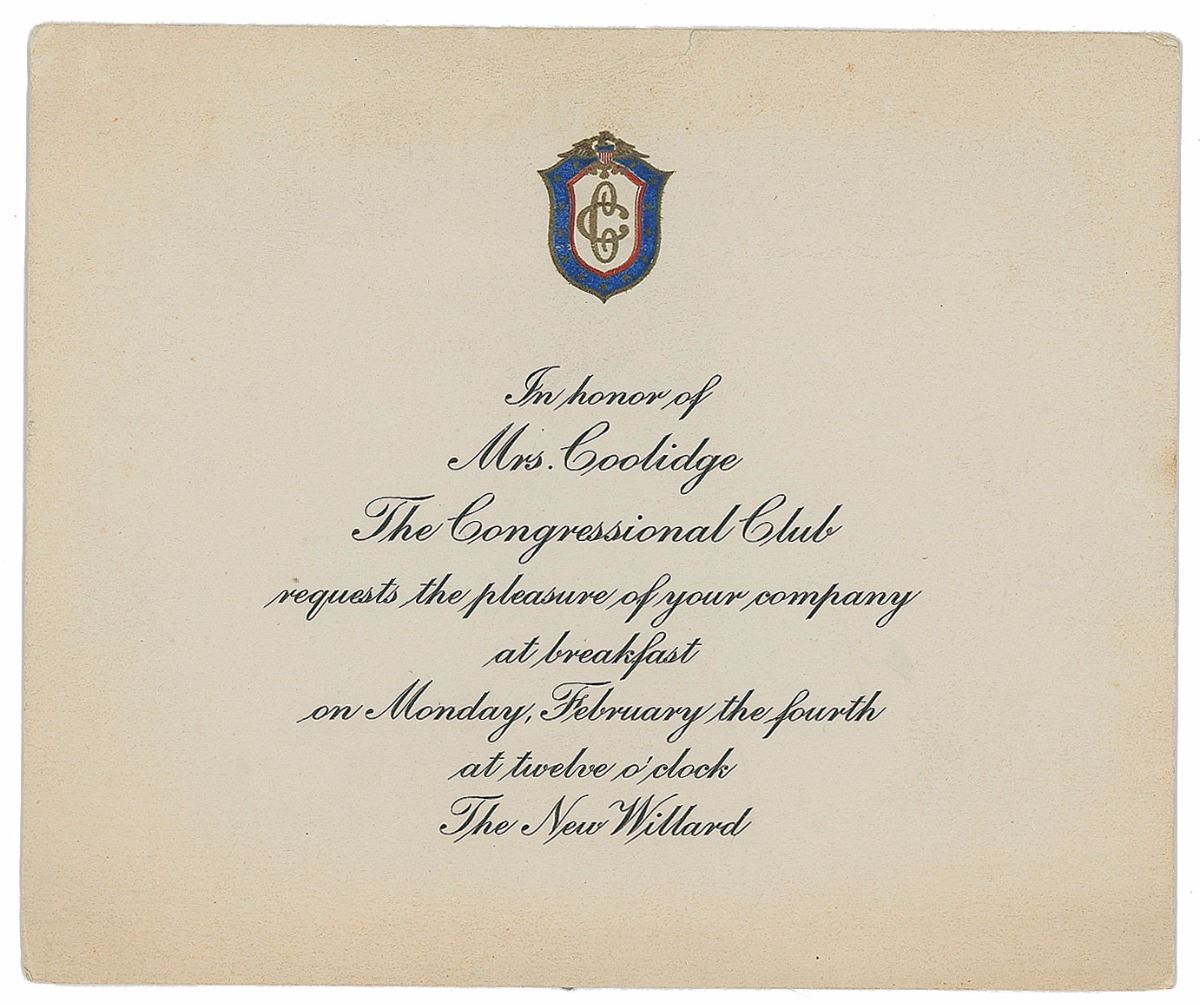 CC
In honor of
Mrs. Coolidge
The Congressional Club
requests the pleasure of your company
at breakfast
on Monday, February the fourth
at twelve o'clock
The New Willard